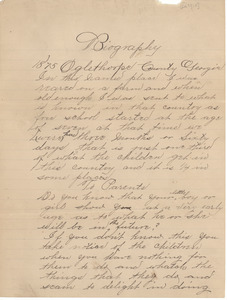 Biography
1875 Oglethorpe County Georgia
In the same place I was
reared on a farm and when
old enough I was sent to what
is known in that country as
free school started at the age
of seven at that time we
went three months or sixty
days that is just one third
of what the children get in
this country and it is by in
some places
To Parents
Do you know that your boy or
girl show you at an early
age as to what he or she
will be in future?
If you don't know this you
take notice of the children
when you have nothing for
them to do and watch the
things that they do and
seam to delight in doing